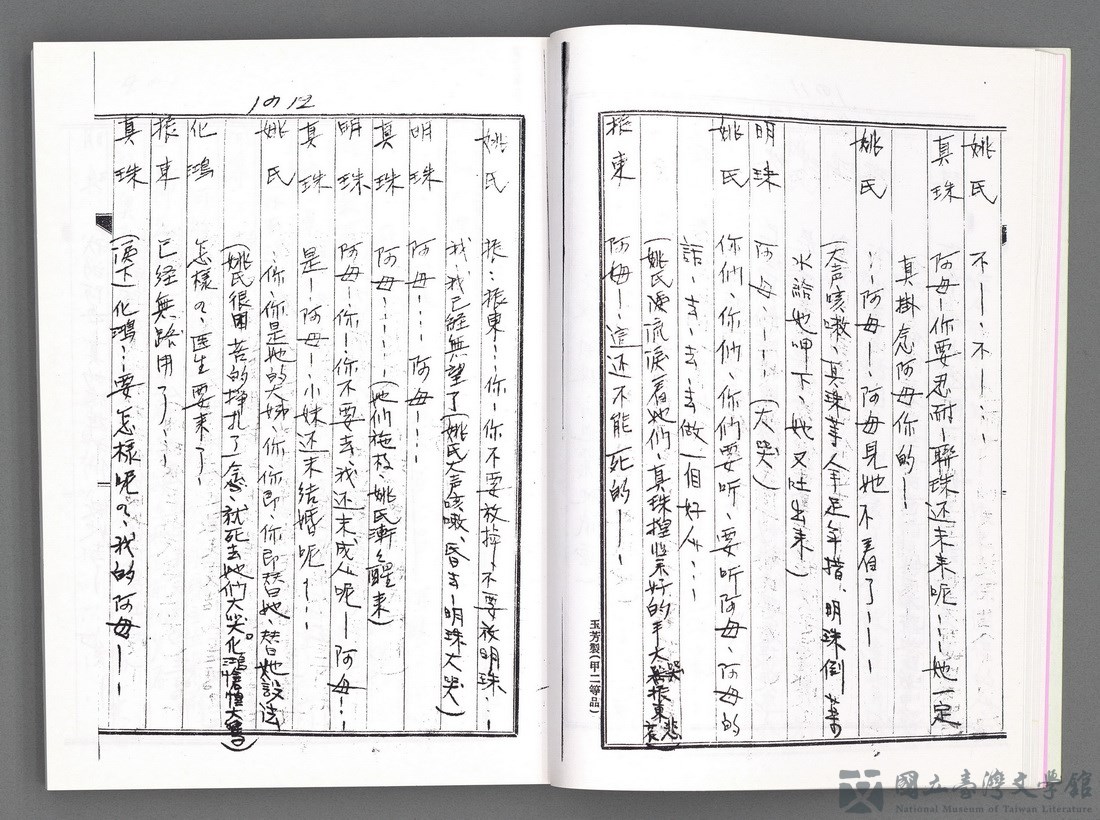 姚氏 不──.不──...
真珠 阿母─你要忍耐─聯珠还未來呢...─她一定
真掛念阿母你的─.
姚氏 ..阿母─.阿母見她不着了─.──
(大声咳嗽、真珠等人手足年措.明珠倒茶
水給她呷下、她又吐出來)
明珠 阿母....(大哭)
姚氏 你們、你們、你們要听、要听阿母、阿母的
話、去、去、去做一個好人...
(姚氏凄流淚看她们、真珠捏緊好的手大哭振東悲哀)
振東 阿姆─.這还不能死的──.
玉芳製(甲二等品)
1の12
姚氏 振..振東..你─你不要放掉─不要放明珠..
我、我已經無望了(姚氏大声咳嗽、昏去─明珠大哭)
明珠 阿母....阿母─...
真珠 阿母....(她们施救、姚氏漸〻醒來)
明珠 阿母─你─你不要去我还未成人呢─阿母..
真珠 是─阿母─小妹还未結婚呢─..
姚氏 .你、你是她的大姊、你你即你即替她、替她設法
(姚氏很困苦的掙扎了一會、就死去她们大哭。化鴻憺惶大驚)
化鴻 怎樣?、医生要來了.
振東 已經無路用了...
真珠 (淚下)化鴻...要怎樣呢?、我的阿母──.
國立臺灣文學館
National Museum of Taiwan Literature